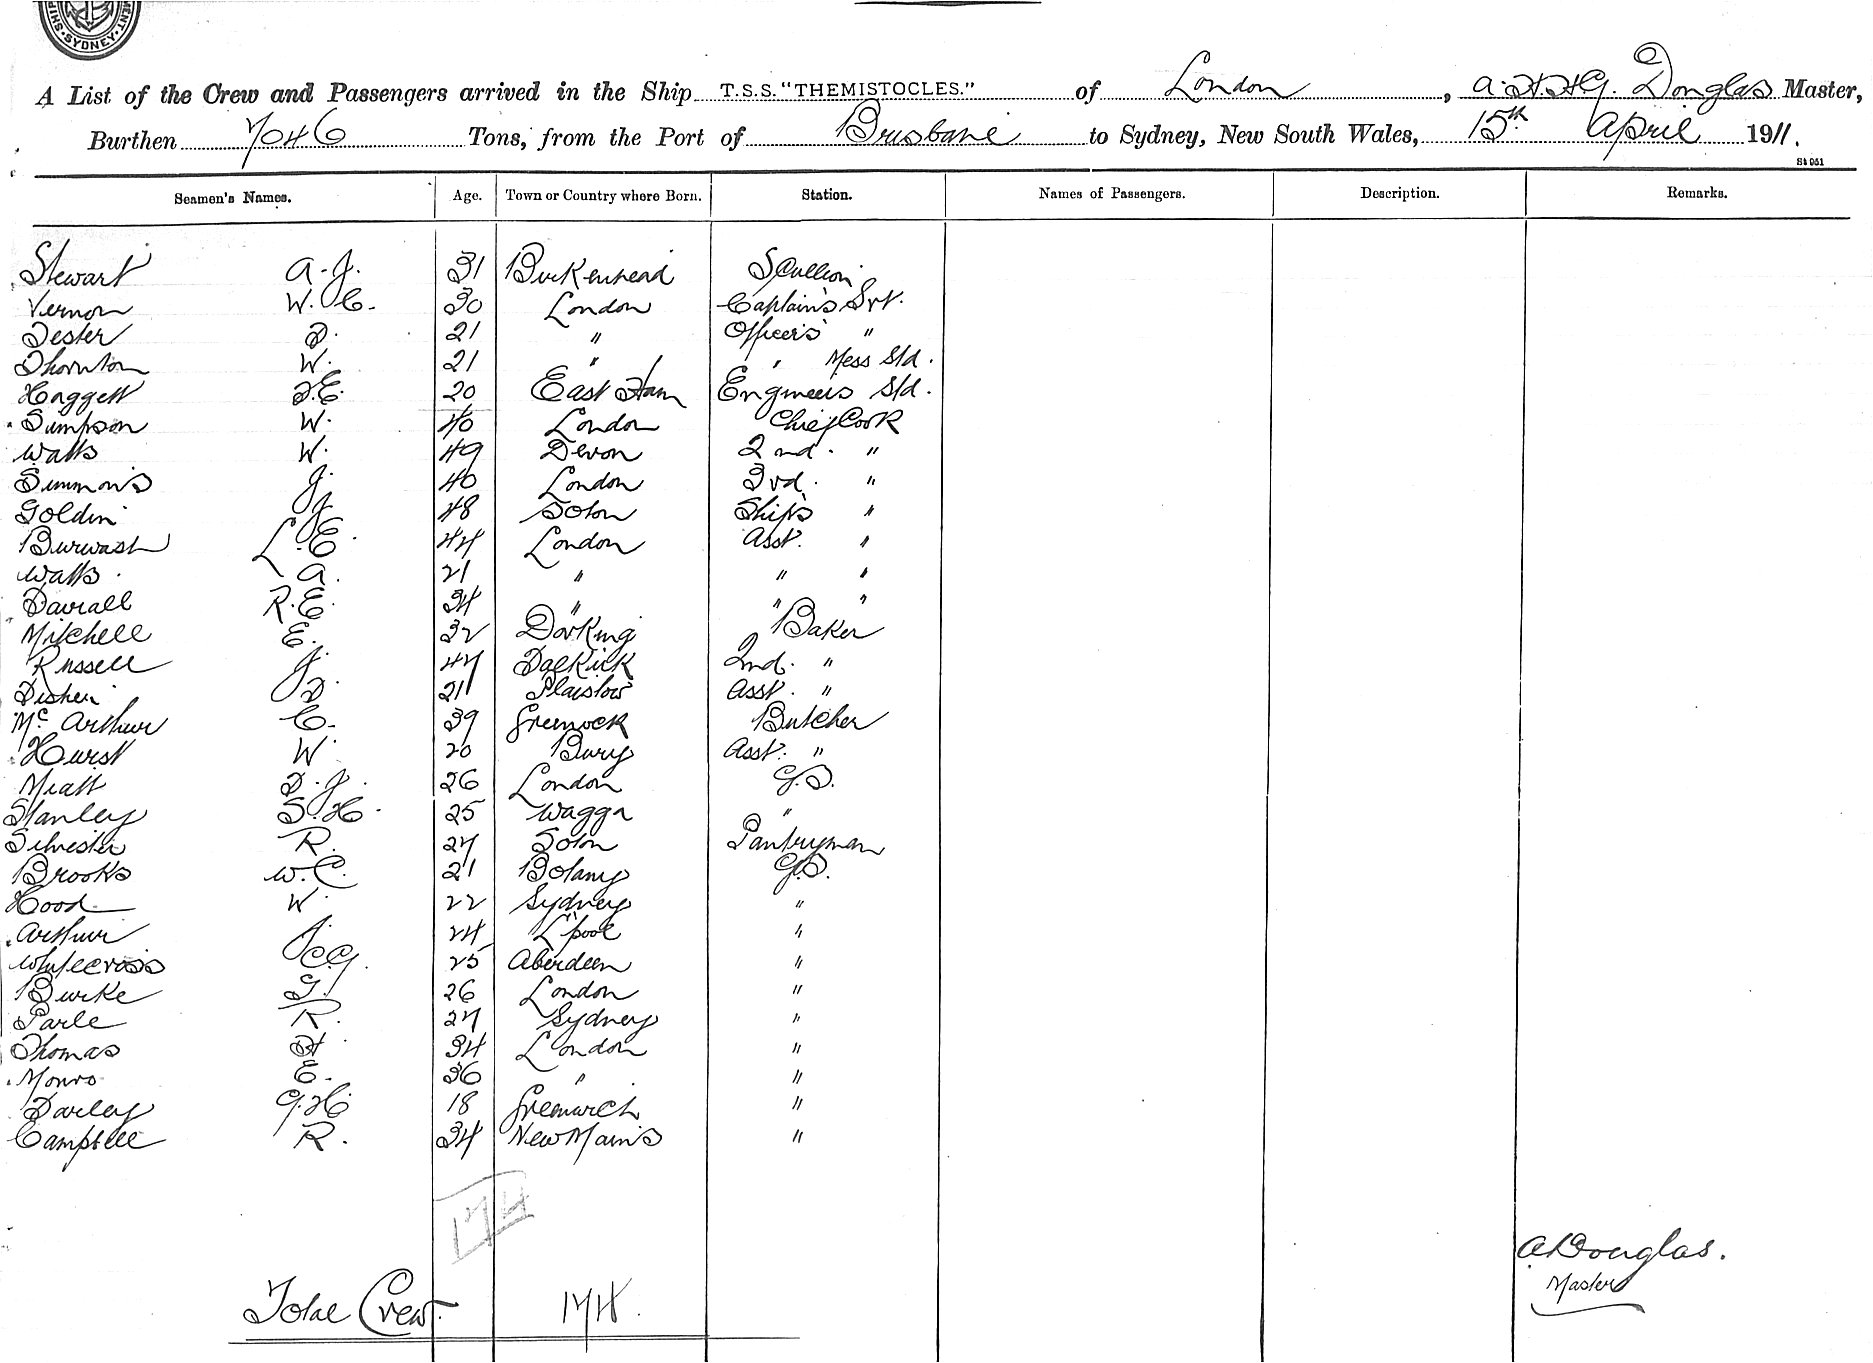 SYDNEY
A List of the Crew and Passengers arrived in the Ship T.S.S. "THEMISTOCLES." of London, A.H.H.G. Douglas Master,
Burthen 7046 Tons, from the Port of Brisbane to Sydney, New South Wales, 15th April 1911.
St 951
Seamen's Names. Age. Town or Country where Born. Station. Names of Passengers. Description. Remarks.
Stewart A. J. 31 Birkenhead Scullion
Vernon W. C. 30 London Captain's Srt.
Tester 21 " Officer's "
Thornton W. 21 " " Mess Std.
Haggett F.E. 20 East Ham Engineers Std.
Simpson W. 40 London Chief Cook
Watts W. 49 Devon 2nd. "
Simmons J. 40 London 3rd. "
Goldin J. 48 Soton Ship's "
Burwash L. E. 44 London Asst. "
Watts A. 21 " " "
Davall R. E. 34 " " "
Mitchell E. 32 Dorking Baker
Russell J. 47 Dalkick 2nd. "
Disher D. 21 Plaistow Asst. "
McArthur C. 39 Greenock Butcher
Hurst W. 20 Bury Asst. "
Miatt D. J. 26 London G.S.
Stanley S. H. 25 Wagga "
Silvester R. 27 Soton Pantryman
Brooks W. C. 21 Botany G.S.
Hood W. 22 Sydney "
Arthur J. 24 L'pool "
Whitecross C.G. 25 Aberdeen "
Burke 26 London "
Parle R. 27 Sydney "
Thomas H. 34 London "
Monro E. 36 " "
Darley G. H. 18 Greenwich "
Campbell R. 34 New Mains "
174
A Douglas.
Master
Total Crew. 174.